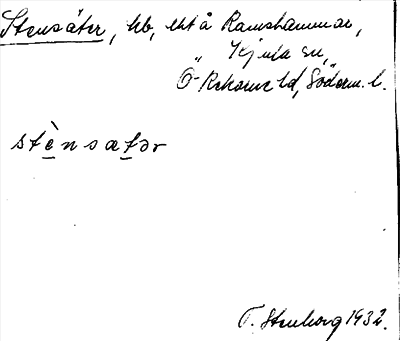 Stensäter, hb, ekt å Ramshammar,
Kjula sn,
Ö-Rekarne hd, Söderm. l.
stènsætər
T. Stenborg 1932.